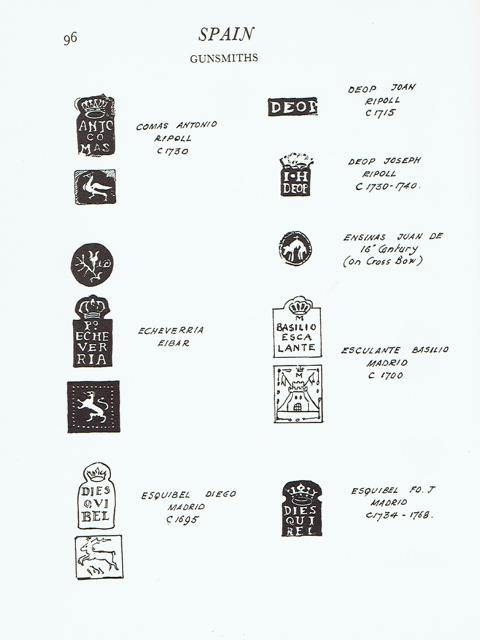 96
SPAIN
GUNSMITHS
ANTO
CO
MAS
COMAS ANTONIO
RIPOLL
C1730
Pº
ECHE
VER
RIA
ECHEVERRIA
EIBAR
DIES
QVI
BEL
ESQUIBEL DIEGO
MADRID
C1695
DEOP
DEOP JOAN
RIPOLL
C1715
I·H
DEOP
DEOP JOSEPH
RIPOLL
C1730-1740.
ENSINAS JUAN DE
16" Century
(on Cross Bow)
M
BASILIO
ESCA
LANTE
M
ESCULANTE BASILIO
MADRID
C 1700
DIES
QUI
BEL
ESQUIBEL FO. J
MADRID
C1734-1768.